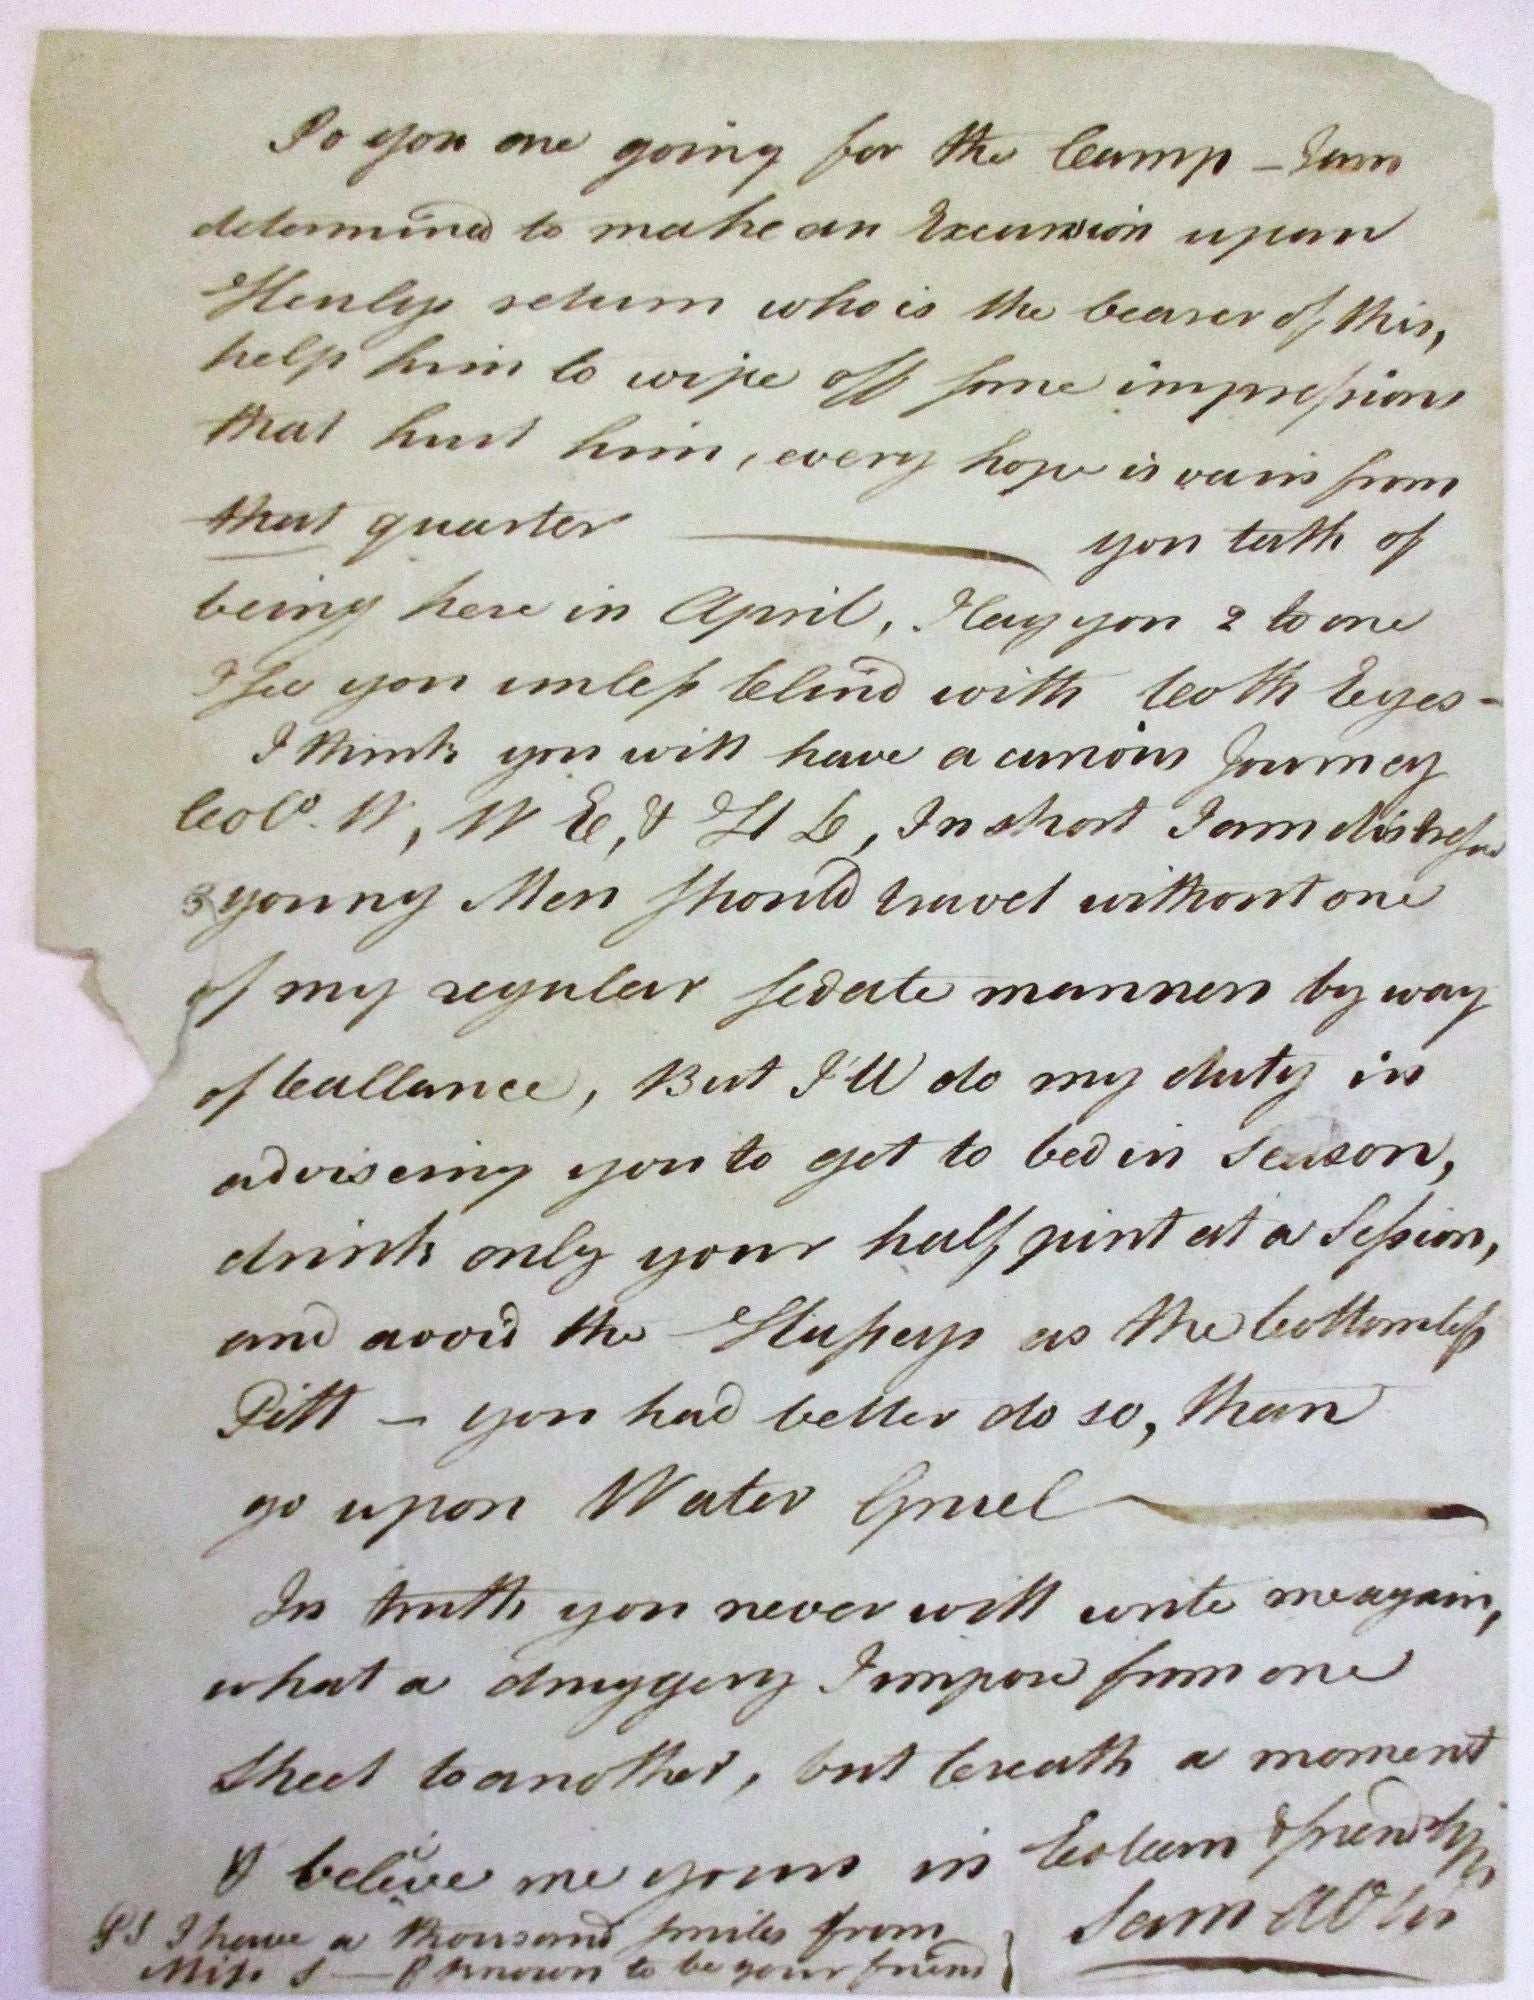 So you are going for the Camp – I am
determined to make an Excursion upon
Henlys return who is the bearer of this,
help him to wipe off some impressions
that hurt him, every hope is vain from
that quarter — you talk of
being here in April, I lay you 2 to one
I see you unless blind with both Eyes –
I think you will have a curious Journey
Colo. W, W E, & H L, In short I am distressed
3 young Men should travel without one
of my regular sedate manners by way
of ballance, But I'll do my duty in
adviseing you to get to bed in season,
drink only your half pint at a Session,
and avoid the as the bottomless
Pitt – you had better do so, than
go upon Water Gruel —
In truth you never will write me again,
what a druggery I impose from one
sheet to another, but breath a moment
& believe me yours in Esteem & friendship
Sam A Otis
PS I have a thousand smiles from
Miss S — known to be your friend